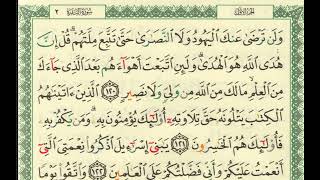 الجزء الأول سورة البقرة ٢
وَلَن تَرْضَىٰ عَنكَ ٱلْيَهُودُ وَلَا ٱلنَّصَٰرَىٰ حَتَّىٰ تَتَّبِعَ مِلَّتَهُمْ ۗ قُلْ إِنَّ
هُدَى ٱللَّهِ هُوَ ٱلْهُدَىٰ ۗ وَلَئِنِ ٱتَّبَعْتَ أَهْوَآءَهُم بَعْدَ ٱلَّذِى جَآءَكَ
مِنَ ٱلْعِلْمِ ۙ مَا لَكَ مِنَ ٱللَّهِ مِن وَلِىٍّ وَلَا نَصِيرٍ ١٢٠ ٱلَّذِينَ ءَاتَيْنَٰهُمُ
ٱلْكِتَٰبَ يَتْلُونَهُۥ حَقَّ تِلَاوَتِهِۦٓ أُو۟لَٰٓئِكَ يُؤْمِنُونَ بِهِۦ ۗ وَمَن يَكْفُرْ بِهِۦ
فَأُو۟لَٰٓئِكَ هُمُ ٱلْخَٰسِرُونَ ١٢١ يَٰبَنِىٓ إِسْرَٰٓءِيلَ ٱذْكُرُوا۟ نِعْمَتِىَ ٱلَّتِىٓ
أَنْعَمْتُ عَلَيْكُمْ وَأَنِّى فَضَّلْتُكُمْ عَلَى ٱلْعَٰلَمِينَ ١٢٢ وَٱتَّقُوا۟ يَوْمًا